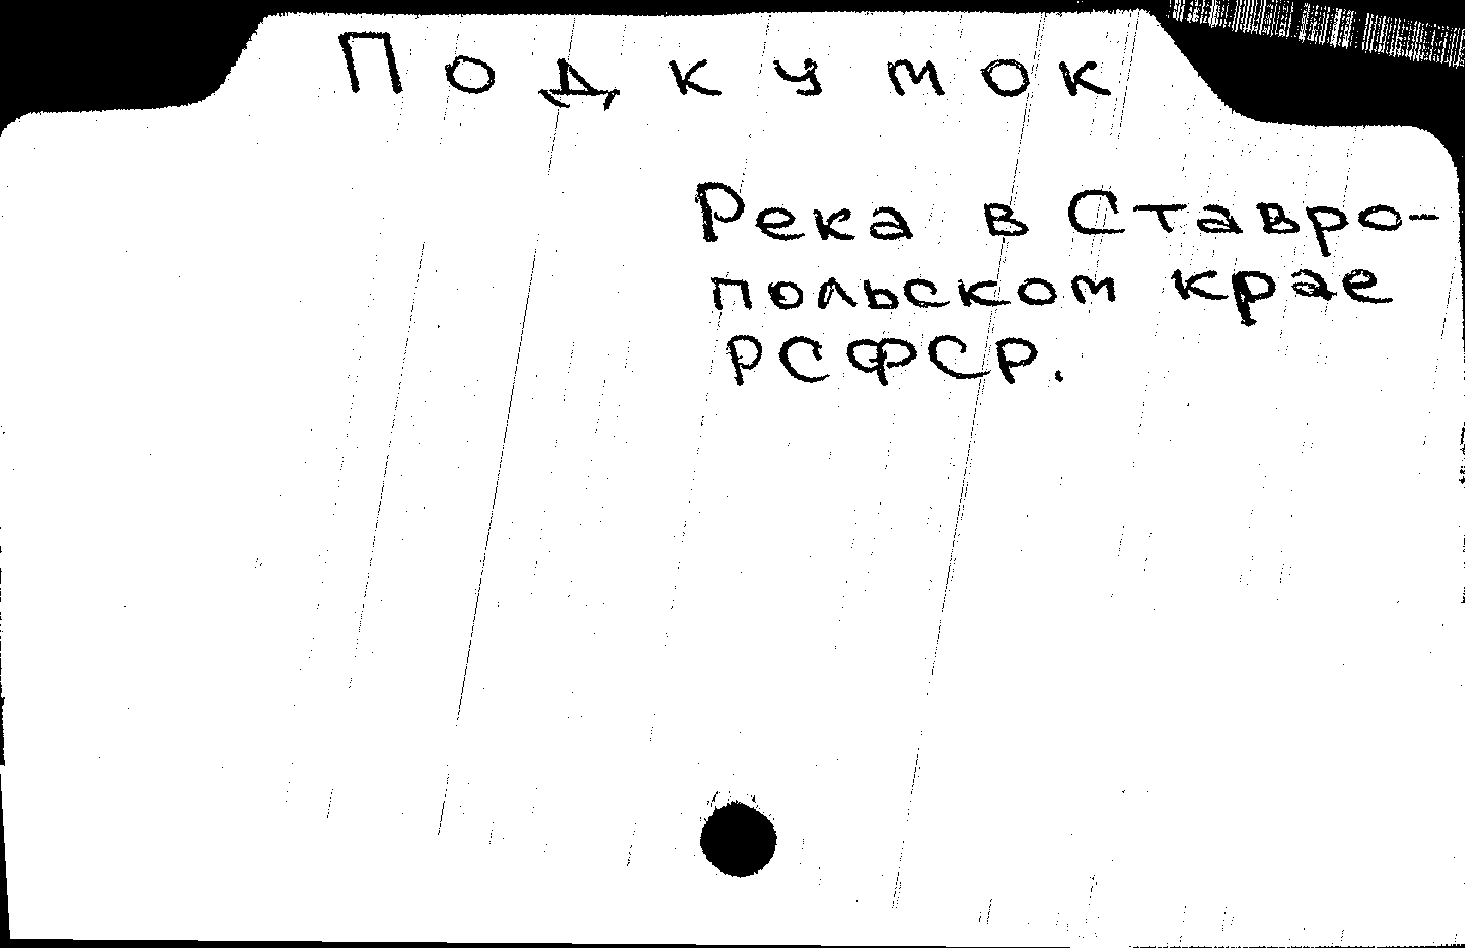 Подкумок
Река в Ставро-
польском крае
РСФСР.